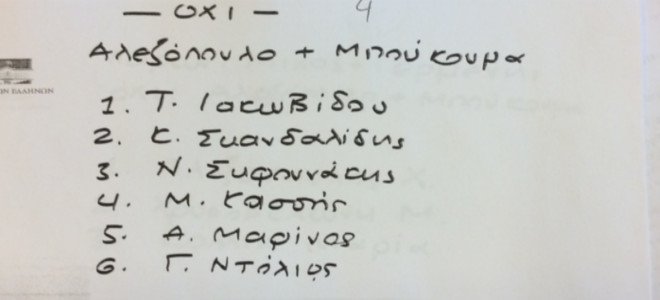 — ΟΧΙ — 4
Αλεξόπουλο + Μπούκουμα
ΩΝ ΕΛΛΗΝΩΝ
1. Τ. ΙακωΒίδου
2. Κ. Σκανδαλίδης
3. Ν. Σηφουνάκης
4. Μ. Κασσής
5. Α. Μαρίνος
6. Γ. Ντόλιος